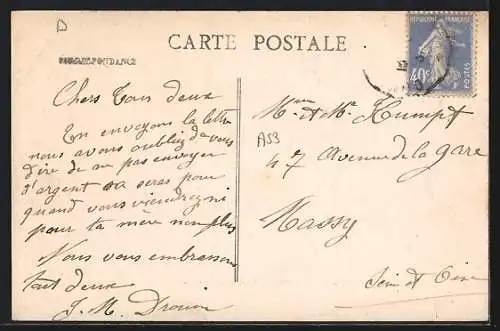 D
CARTE POSTALE
CORRESPONDANCE
REPUBLIQUE FRANÇAISE
40c
POSTES
Chers Tous deux
En envoyons la lettre
nous avons oubliez de vous
dire de ne pas envoyer
l'argent sa seras pour
quand vous viendrez ni
pour ta mère non plus
Nous vous embrassons
tout deux
J. M. Drouin
Mme et Mr Kumpf
A53
47 Avenue de la gare
Massy
Seine et Oise